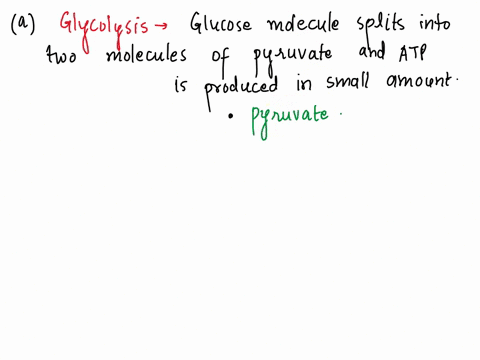 (a) Glycolysis → Glucose molecule splits into
two molecules of pyruvate and ATP
is produced in small amount.
• pyruvate.